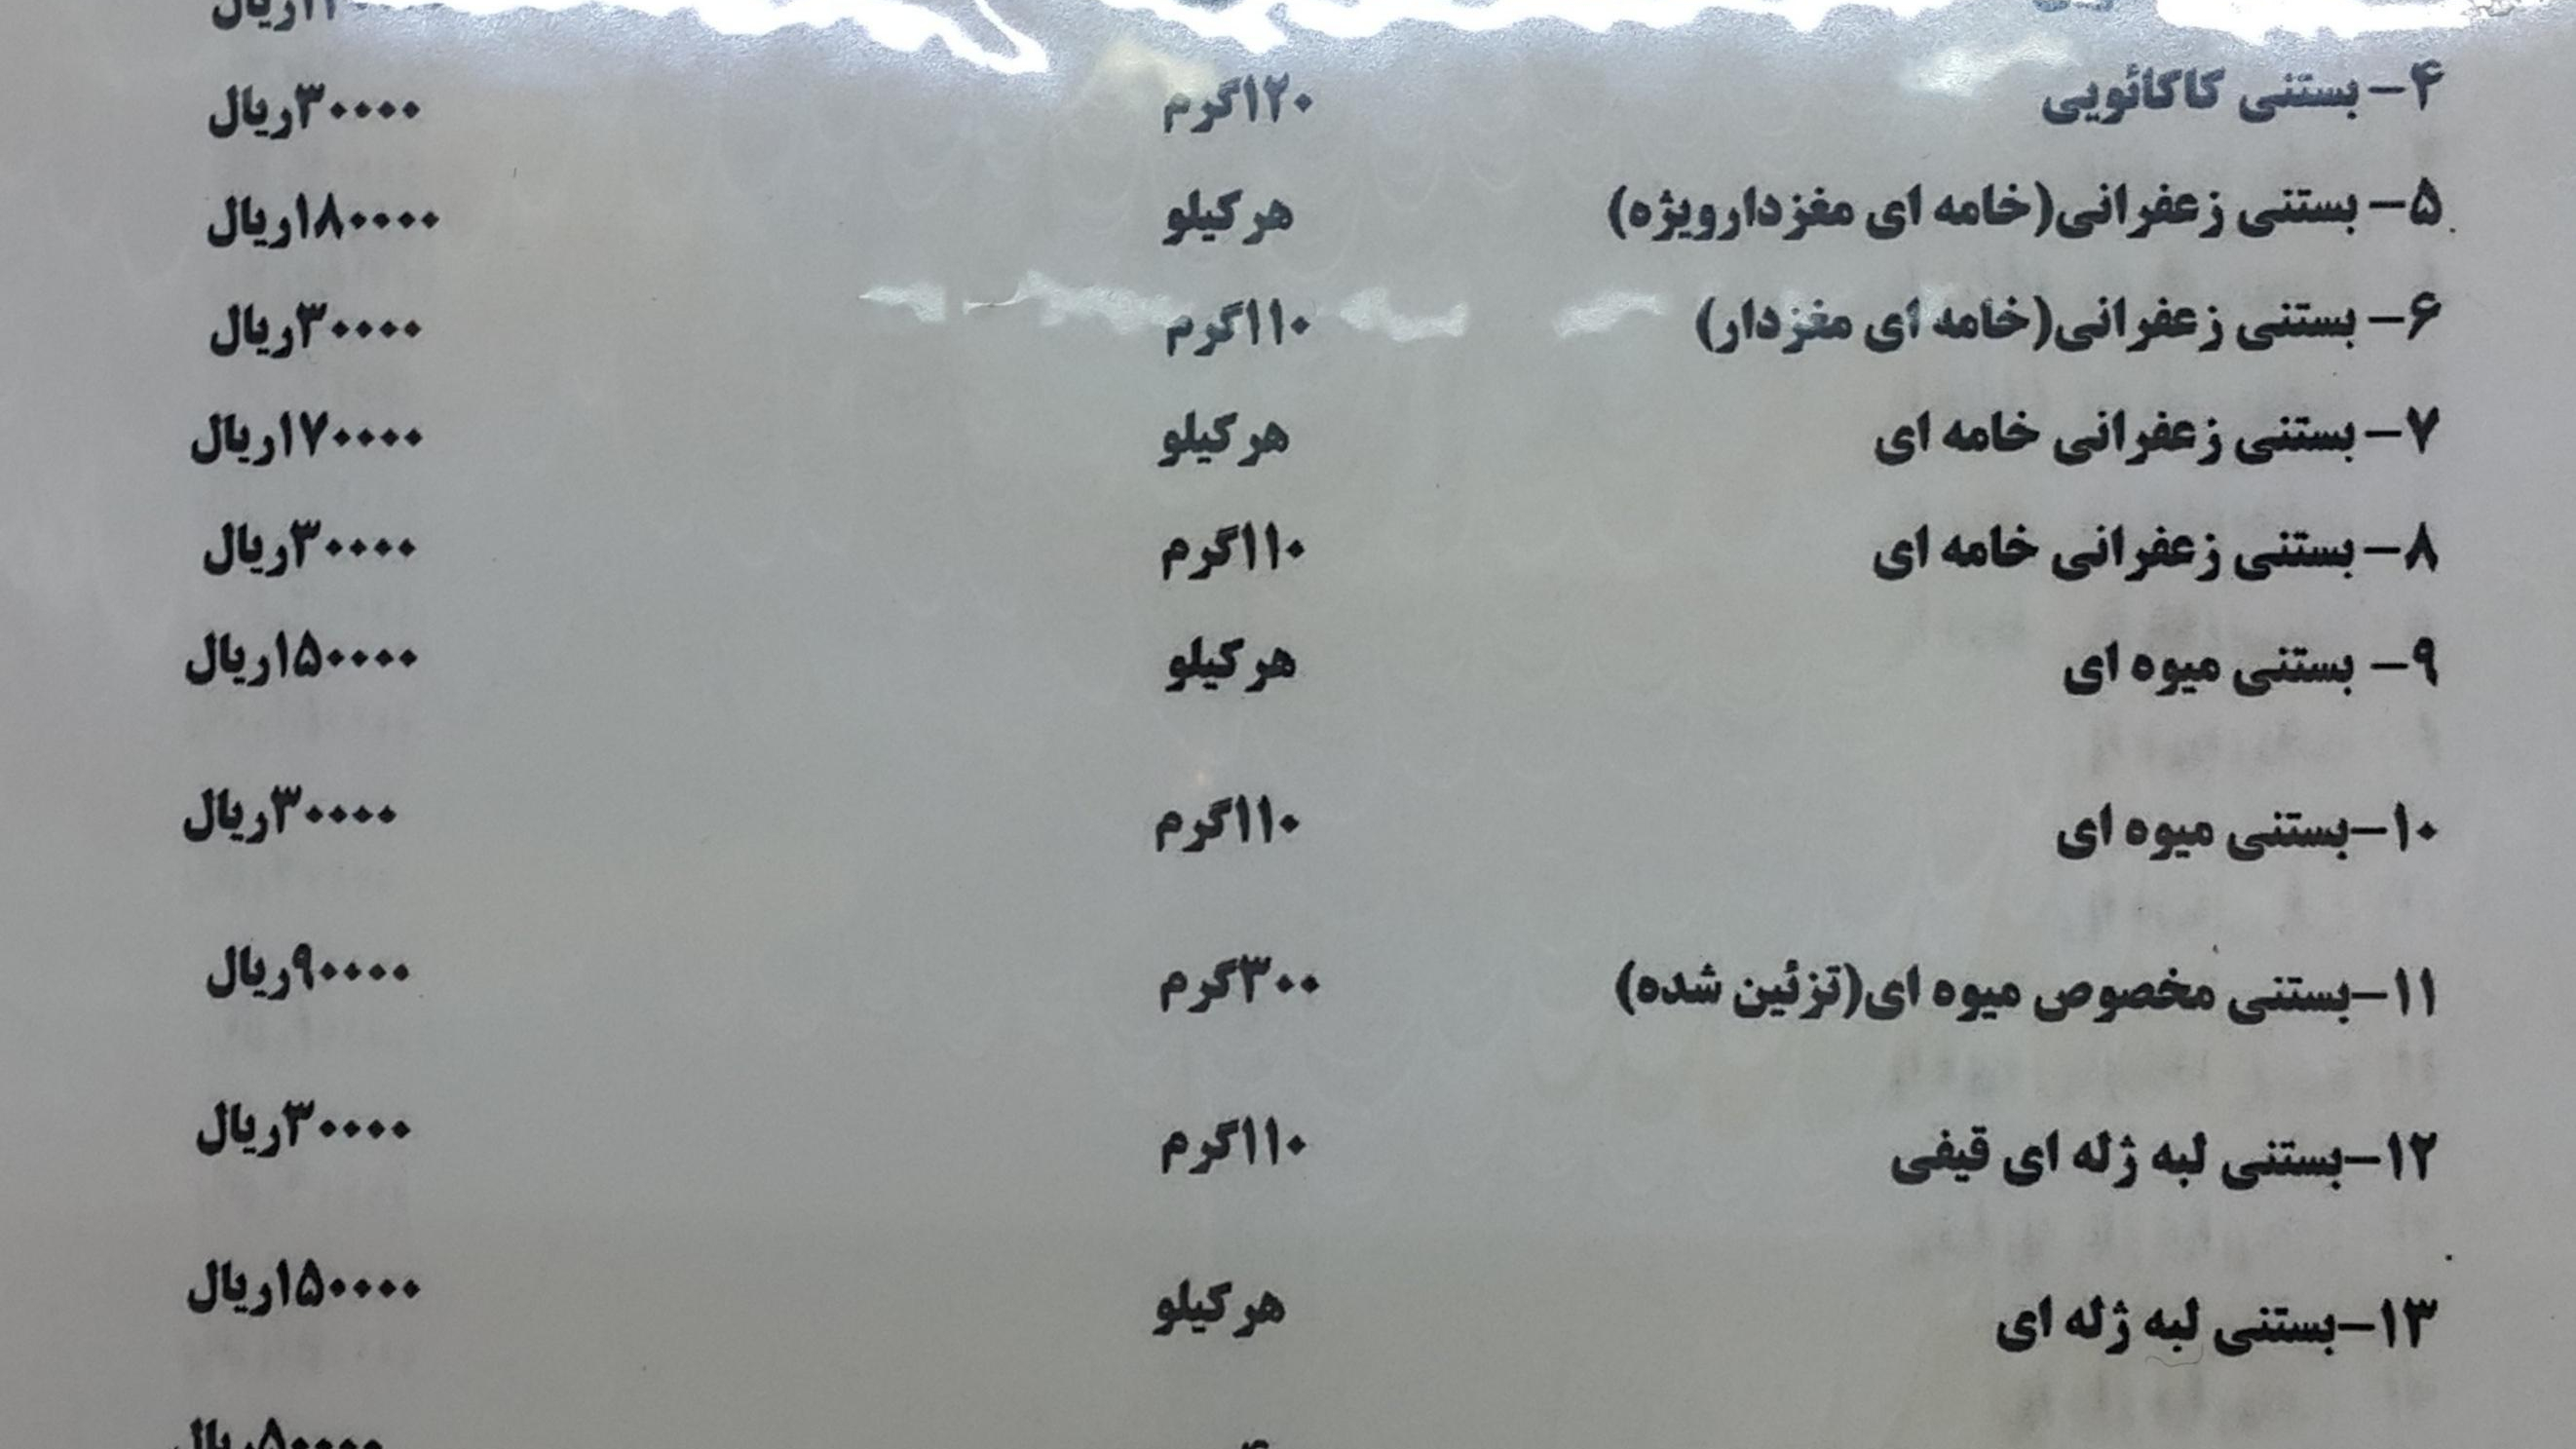 ریال
۴- بستنی کاکائویی ۱۲۰گرم ۳۰۰۰۰ریال
۵- بستنی زعفرانی(خامه ای مغزدارویژه) هرکیلو ۱۸۰۰۰۰ریال
۶- بستنی زعفرانی(خامه ای مغزدار) ۱۱۰گرم ۳۰۰۰۰ریال
۷- بستنی زعفرانی خامه ای هرکیلو ۱۷۰۰۰۰ریال
۸- بستنی زعفرانی خامه ای ۱۱۰گرم ۳۰۰۰۰ریال
۹- بستنی میوه ای هرکیلو ۱۵۰۰۰۰ریال
۱۰-بستنی میوه ای ۱۱۰گرم ۳۰۰۰۰ریال
۱۱-بستنی مخصوص میوه ای(تزئین شده) ۳۰۰گرم ۹۰۰۰۰ریال
۱۲-بستنی لبه ژله ای قیفی ۱۱۰گرم ۳۰۰۰۰ریال
۱۳-بستنی لبه ژله ای هرکیلو ۱۵۰۰۰۰ریال
۵۰۰۰۰ریال